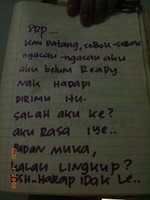 prp....
Kau datang, sebok-sebok
ngacau-ngacau aku
aku belum Ready
Nak Hadapi
Dirimu itu.
Salah aku ke?
aku rasa iye..
Padan muka,
Kalah Lingkup?
Ish-Harap idak Le..